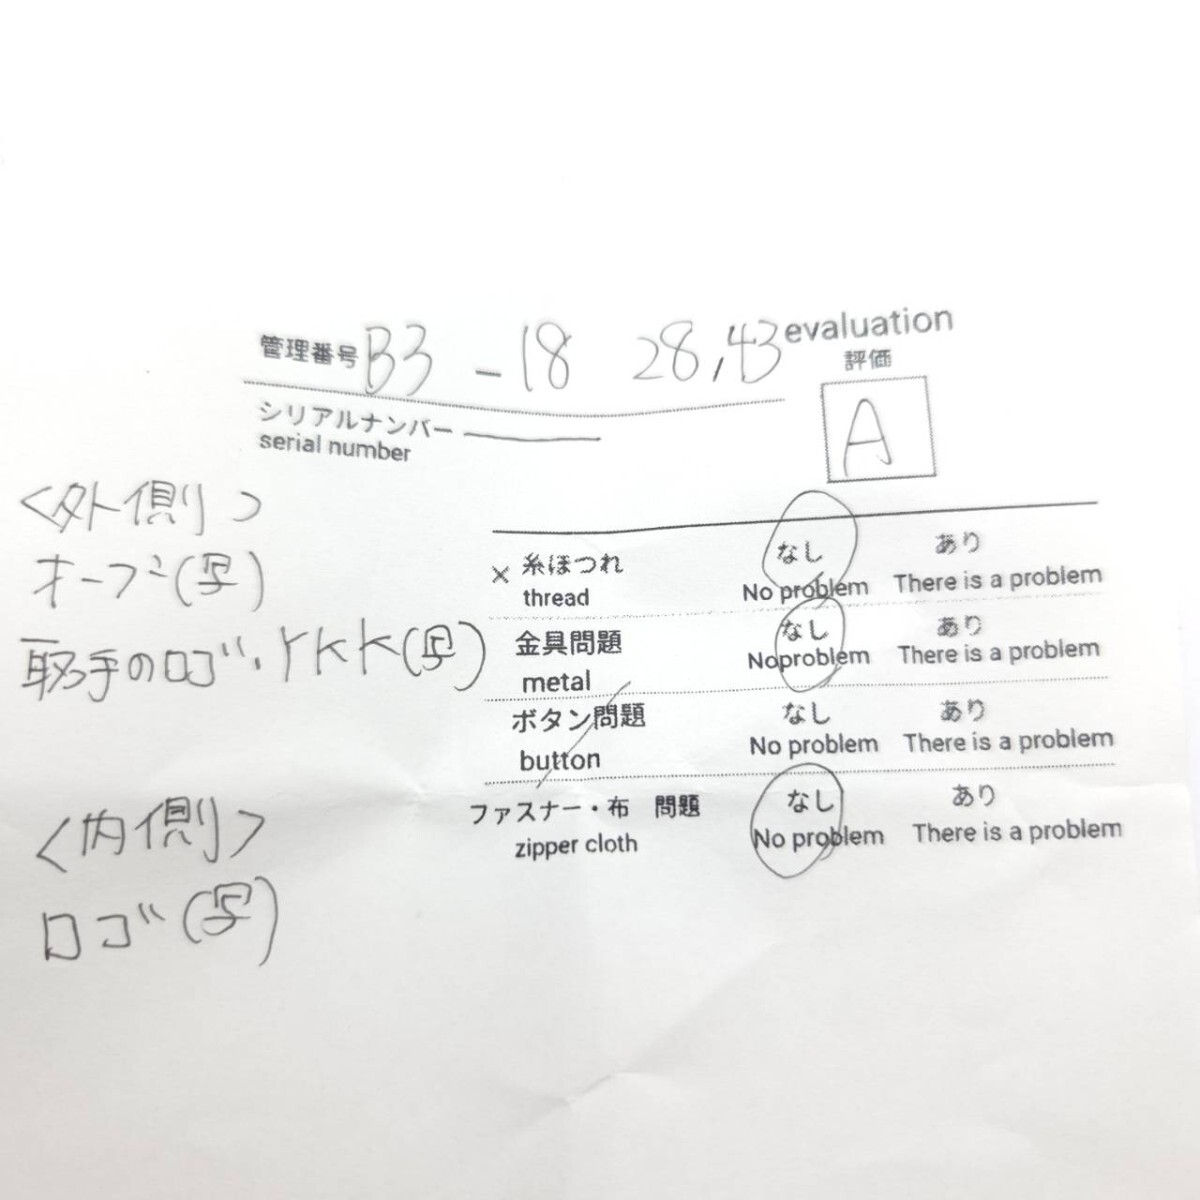 管理番号 B3 - 18 28,43 evaluation
評価
A
シリアルナンバー
serial number
<外側>
オープン(写)
取手のロゴ・YKK(写)
<内側>
ロゴ(写)
× 糸ほつれ なし あり
thread No problem There is a problem
金具問題 なし あり
metal Noproblem There is a problem
ボタン問題 なし あり
button No problem There is a problem
ファスナー・布 問題 なし あり
zipper cloth No problem There is a problem